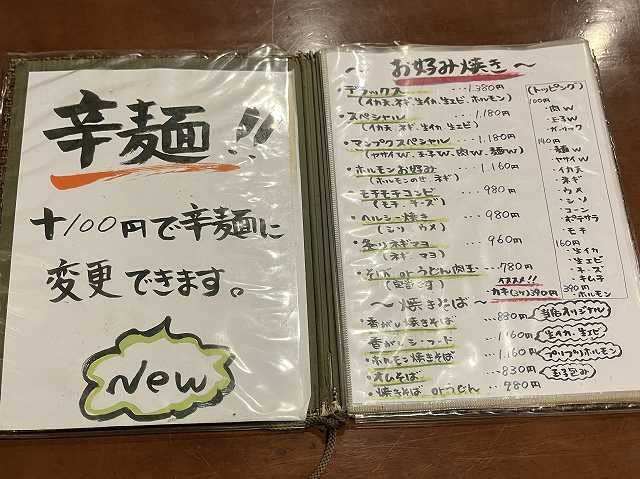 辛麺!!
+100円で辛麺に
変更できます。
New
~ お好み焼き ~
・デラックス ・・・1,380円
(イカ天、ネギ、生イカ、生エビ、ホルモン)
・スペシャル ・・・1,180円
(イカ天、ネギ、生イカ、生エビ)
・マンプクスペシャル ・・・1,180円
(ヤサイW、玉子W、肉W、麺W)
・ホルモンお好み ・・・1,160円
(ホルモンのせ、ネギ)
・モチモチコンビ ・・・980円
(モチ、チーズ)
・ヘルシー焼き ・・・980円
(シソ、ウメ)
・炙りネギマヨ ・・・960円
(ネギ、マヨ)
・そば orうどん肉玉 ・・・780円
オススメ!!
・カキ(3ケ)390円
(トッピング)
100円
・肉W
・玉子W
・ガーリック
140円
・麺W
・ヤサイW
・イカ天
・ネギ
・ウメ
・シソ
・コーン
・ポテサラ
・モチ
160円
・生イカ
・生エビ
・チーズ
・キムチ
390円
・ホルモン
~ 焼きそば ~
・香がし焼きそば ・・・830円 当店オリジナル
・香がしシーフード ・・・1,160円 生イカ・生エビ
・ホルモン焼きそば ・・・1,160円 プリプリホルモン
・オムそば ・・・830円 玉子包み
・焼きそば orうどん ・・・780円